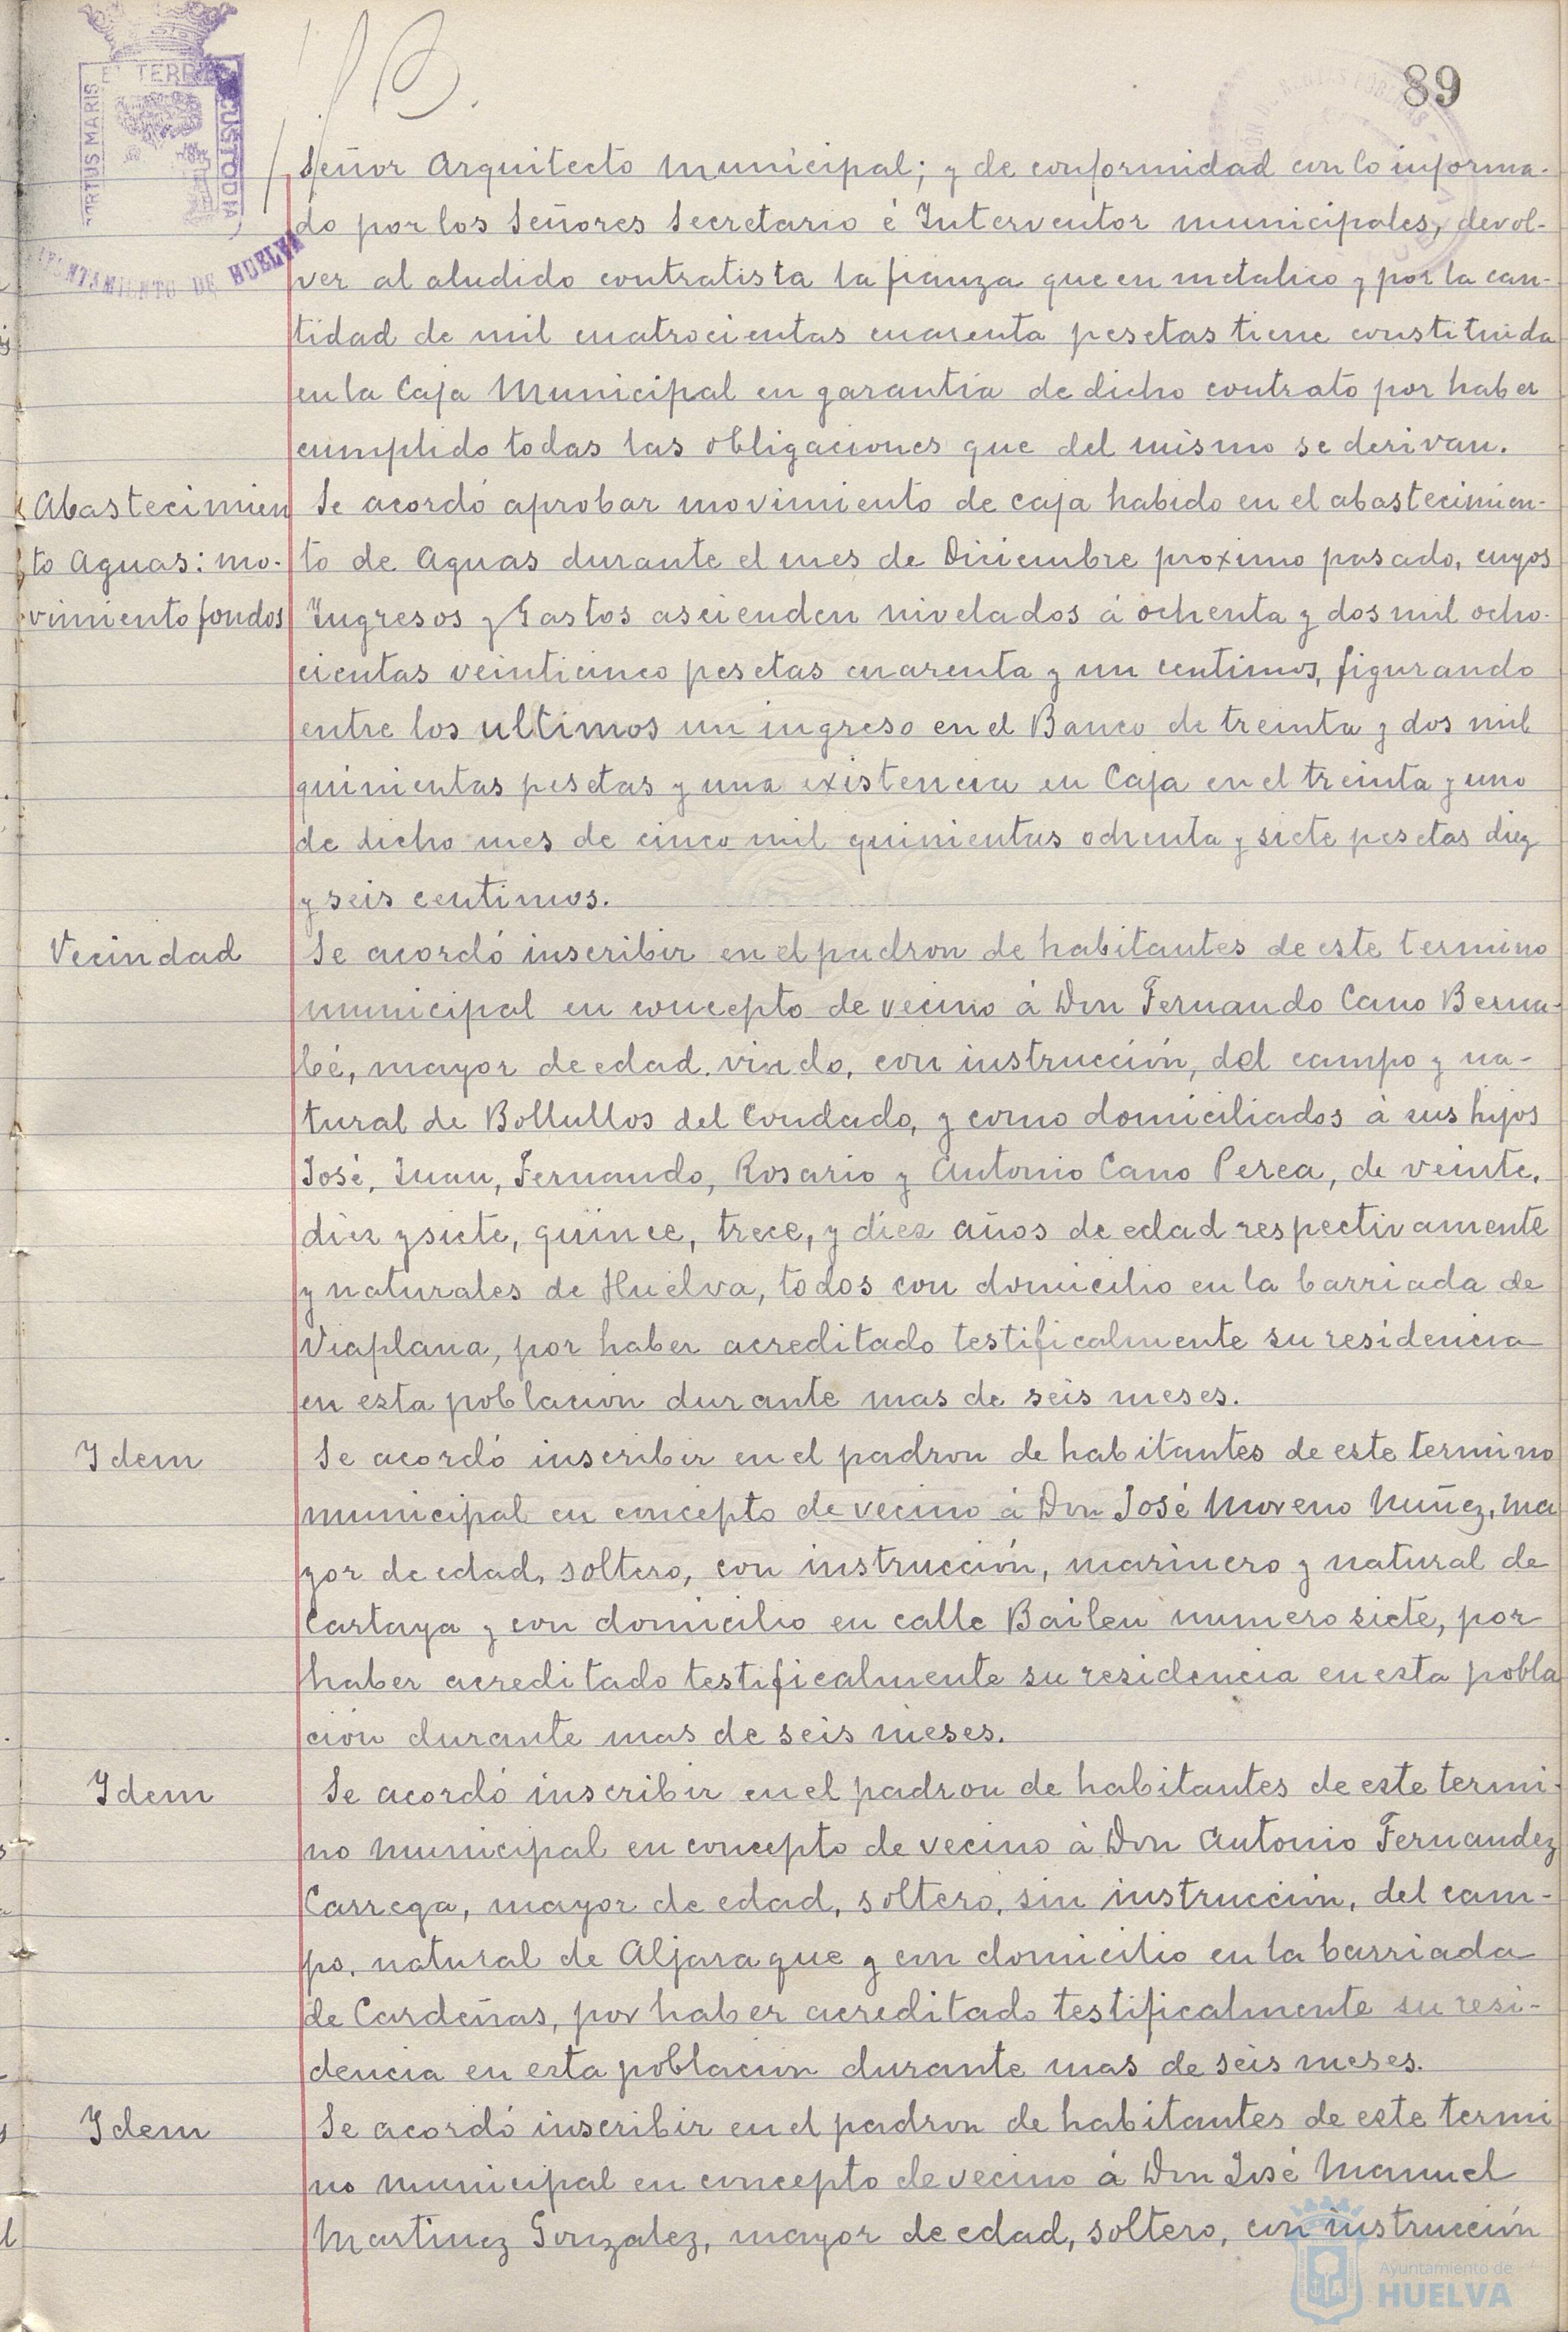 89
PORTUS MARIS ET TERRE CUSTODIA
AYUNTAMIENTO DE HUELVA
Señor Arquitecto Municipal; y de conformidad con lo informa-
do por los Señores Secretario é Interventor municipales, devol-
ver al aludido contratista la fianza que en metalico y por la can-
tidad de mil cuatrocientas cuarenta pesetas tiene constituida
en la Caja Municipal en garantía de dicho contrato por haber
cumplido todas las obligaciones que del mismo se derivan.
Abastecimien Se acordó aprobar movimiento de caja habido en el abastecimien-
to Aguas: mo- to de Aguas durante el mes de Diciembre proximo pasado, cuyos
vimiento fondos Ingresos y Gastos ascienden nivelados á ochenta y dos mil ocho-
cientas veinticinco pesetas cuarenta y un centimos, figurando
entre los ultimos un ingreso en el Banco de treinta y dos mil
quinientas pesetas y una existencia en Caja en el treinta y uno
de dicho mes de cinco mil quinientas ochenta y siete pesetas diez
y seis centimos.
Vecindad Se acordó inscribir en el padron de habitantes de este termino
municipal en concepto de vecino á Don Fernando Cano Berna-
bé, mayor de edad, viudo, con instrucción, del campo y na-
tural de Bollullos del Condado, y como domiciliados á sus hijos
José, Juan, Fernando, Rosario y Antonio Cano Perea, de veinte,
diez y siete, quince, trece, y diez años de edad respectivamente
y naturales de Huelva, todos con domicilio en la barriada de
Viaplana, por haber acreditado testificalmente su residencia
en esta poblacion durante mas de seis meses.
Idem Se acordó inscribir en el padron de habitantes de este termino
municipal en concepto de vecino á Don José Moreno Nuñez, ma
yor de edad, soltero, con instrucción, marinero y natural de
Cartaya y con domicilio en calle Bailen numero siete, por
haber acreditado testificalmente su residencia en esta pobla
ción durante mas de seis meses.
Idem Se acordó inscribir en el padron de habitantes de este termi-
no municipal en concepto de vecino á Don Antonio Fernandez
Carrega, mayor de edad, soltero, sin instrucción, del cam-
po, natural de Aljaraque y con domicilio en la barriada
de Cardeñas, por haber acreditado testificalmente su resi-
dencia en esta poblacion durante mas de seis meses.
Idem Se acordó inscribir en el padron de habitantes de este termi
no municipal en concepto de vecino á Don José Manuel
Martinez Gonzalez, mayor de edad, soltero, con instrucción
Ayuntamiento de
HUELVA